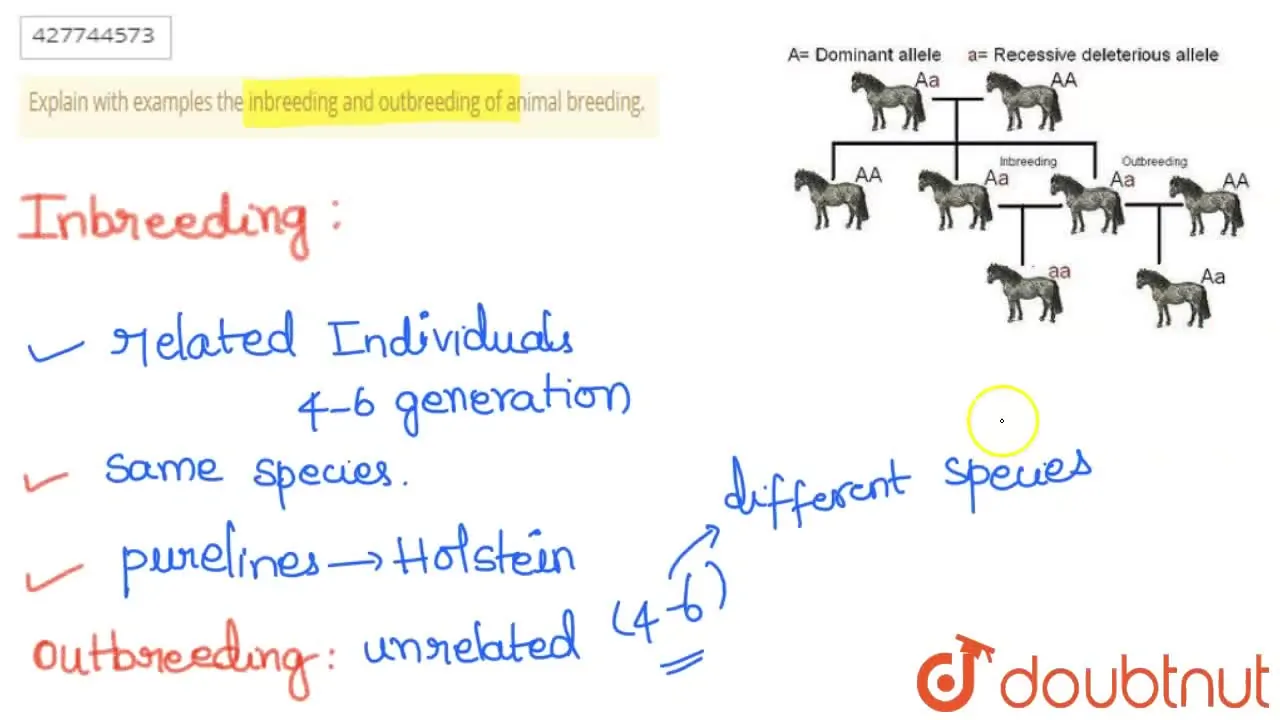 427744573
Explain with examples the inbreeding and outbreeding of animal breeding.
A= Dominant allele a= Recessive deleterious allele
Aa AA
Inbreeding Outbreeding
AA Aa Aa AA
aa Aa
Inbreeding :
related Individuals
4-6 generation
same species.
purelines → Holstein
outbreeding : unrelated (4-6)
different species
doubtnut